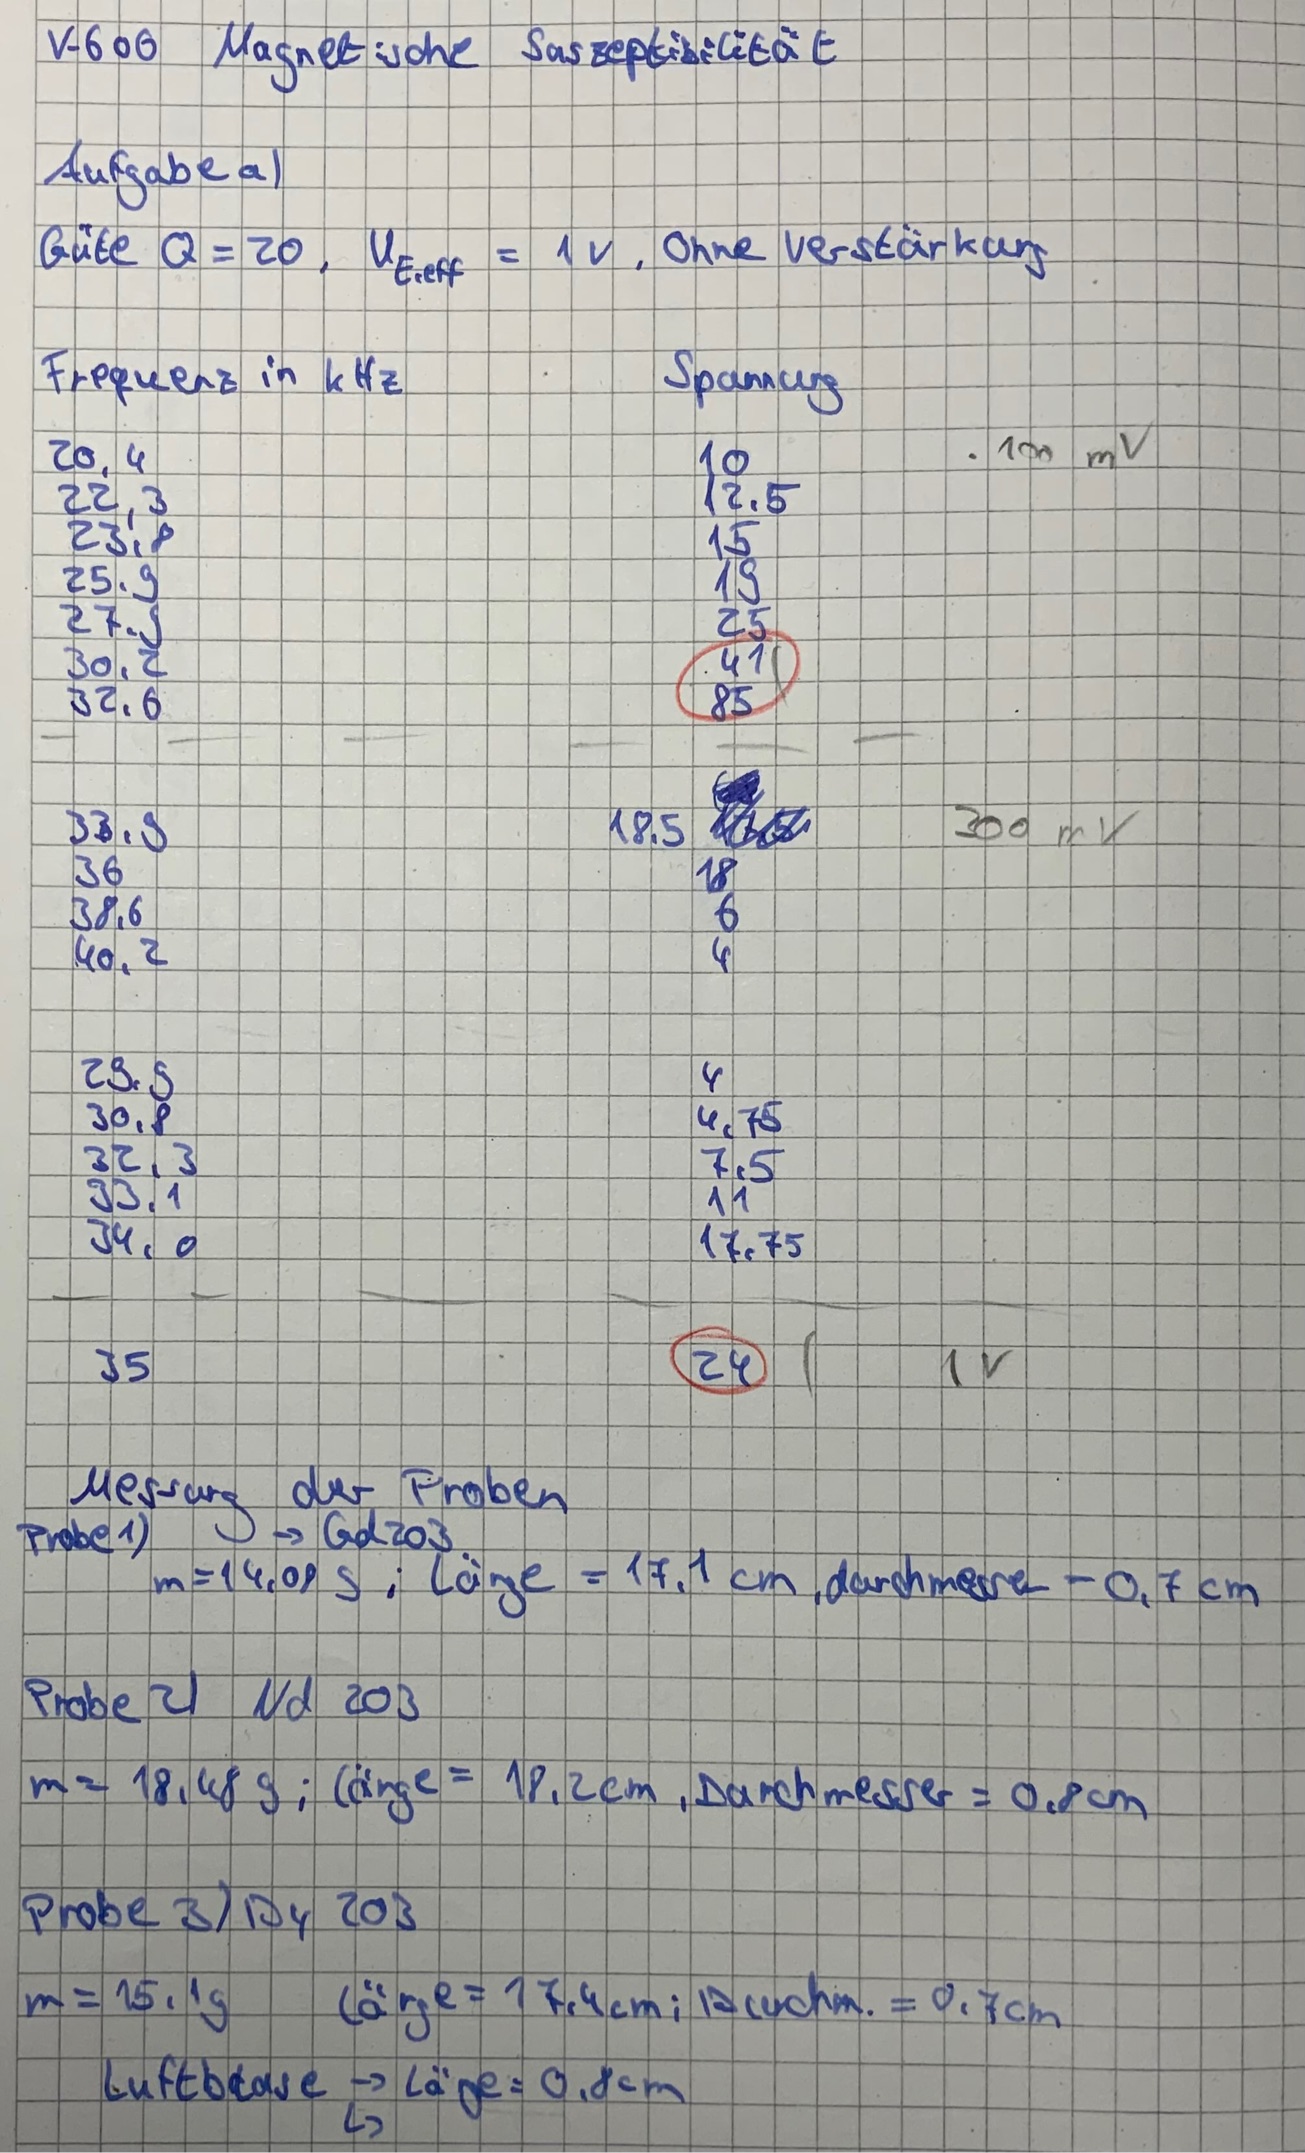 V-606 Magnetische Suszeptibilität
Aufgabe a)
Güte Q = 20, U_E,eff = 1V, Ohne Verstärkung
Frequenz in kHz Spannung
20,4 10 · 100 mV
22,3 12.5
23,8 15
25.9 19
27.9 25
30.2 41
32.6 85
33.9 18.5 300 mV
36 18
38,6 6
40,2 4
29.9 4
30.8 4,75
32,3 7,5
33.1 11
34,0 17.75
35 24 1V
Messung der Proben
Probe 1) → Gd2O3
m=14.08 g ; Länge = 17,1 cm, durchmesser = 0,7 cm
Probe 2) Nd 2O3
m = 18,48 g ; Länge = 18,2cm, Durchmesser = 0,8cm
Probe 3) Dy 2O3
m = 15,1g Länge = 17,4cm; Durchm. = 0,7cm
Luftblase → Läge = 0,8cm
↳